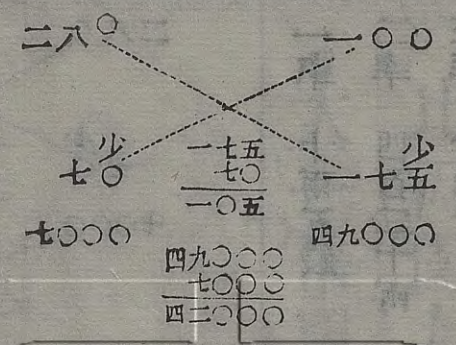 二八〇 一〇〇
少 少
七〇 一七五
一七五
七〇
一〇五
七〇〇〇 四九〇〇〇
四九〇〇〇
七〇〇〇
四二〇〇〇